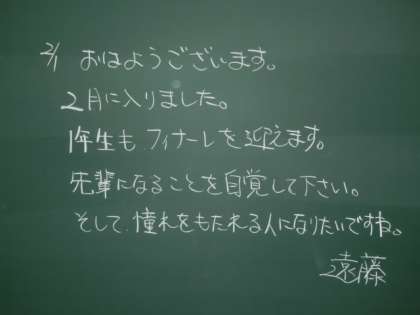 2/1 おはようございます。
2月に入りました。
1年生も フィナーレを迎えます。
先輩になることを自覚して下さい。
そして、憧れをもたれる人になりたいですね。
遠藤